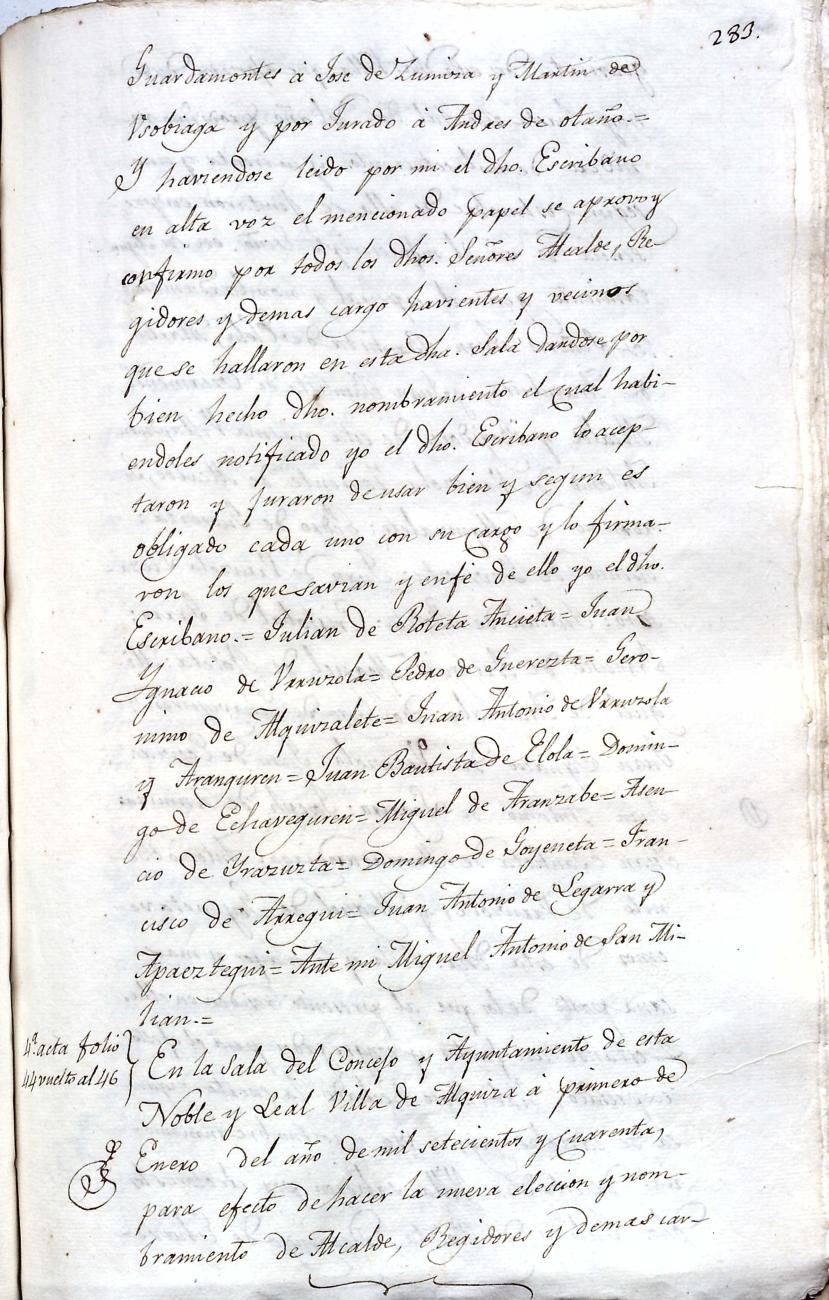 283.
Guardamontes â Jose de Zumiza y Martin de
Vsobiaga y por Jurado â Andres de otaño.=
Y haviendose leido por mi el dho. Escribano
en alta voz el mencionado papel se aprovoy
confirmo por todos los dhos. Señores Alcalde, Re-
gidores y demas cargo havientes y vecinos
que se hallaron en esta dha. Sala dandose por
bien hecho dho. nombramiento el cual habi-
endoles notificado yo el dho. Escribano lo acep-
taron y juraron de usar bien y segun es
obligado cada uno con su cargo y lo firma-
ron los que savian y enfé de ello yo el dho.
Escribano.= Julian de Roteta Ancieta= Juan
Ygnacio de Vrruzola= Pedro de Guerezta= Gero-
nimo de Alquizalete= Juan Antonio de Vrruzola
y Aranguren= Juan Bautista de Elola= Domin-
go de Echaveguren= Miguel de Aranzabe= Asen-
cio de Yrazuzta= Domingo de Goyeneta= Fran-
cisco de Arregui= Juan Antonio de Legarra y
Apaeztegui= Ante mi Miguel Antonio de San Mi-
llian.=
4ª acta folio
44 vuelto al 46
En la Sala del Concejo y Ayuntamiento de esta
Noble y Leal Villa de Alquiza â primero de
Enero del año de mil setecientos y cuarenta,
para efecto de hacer la nueva eleccion y nom-
bramiento de Alcalde, Regidores y demas car-